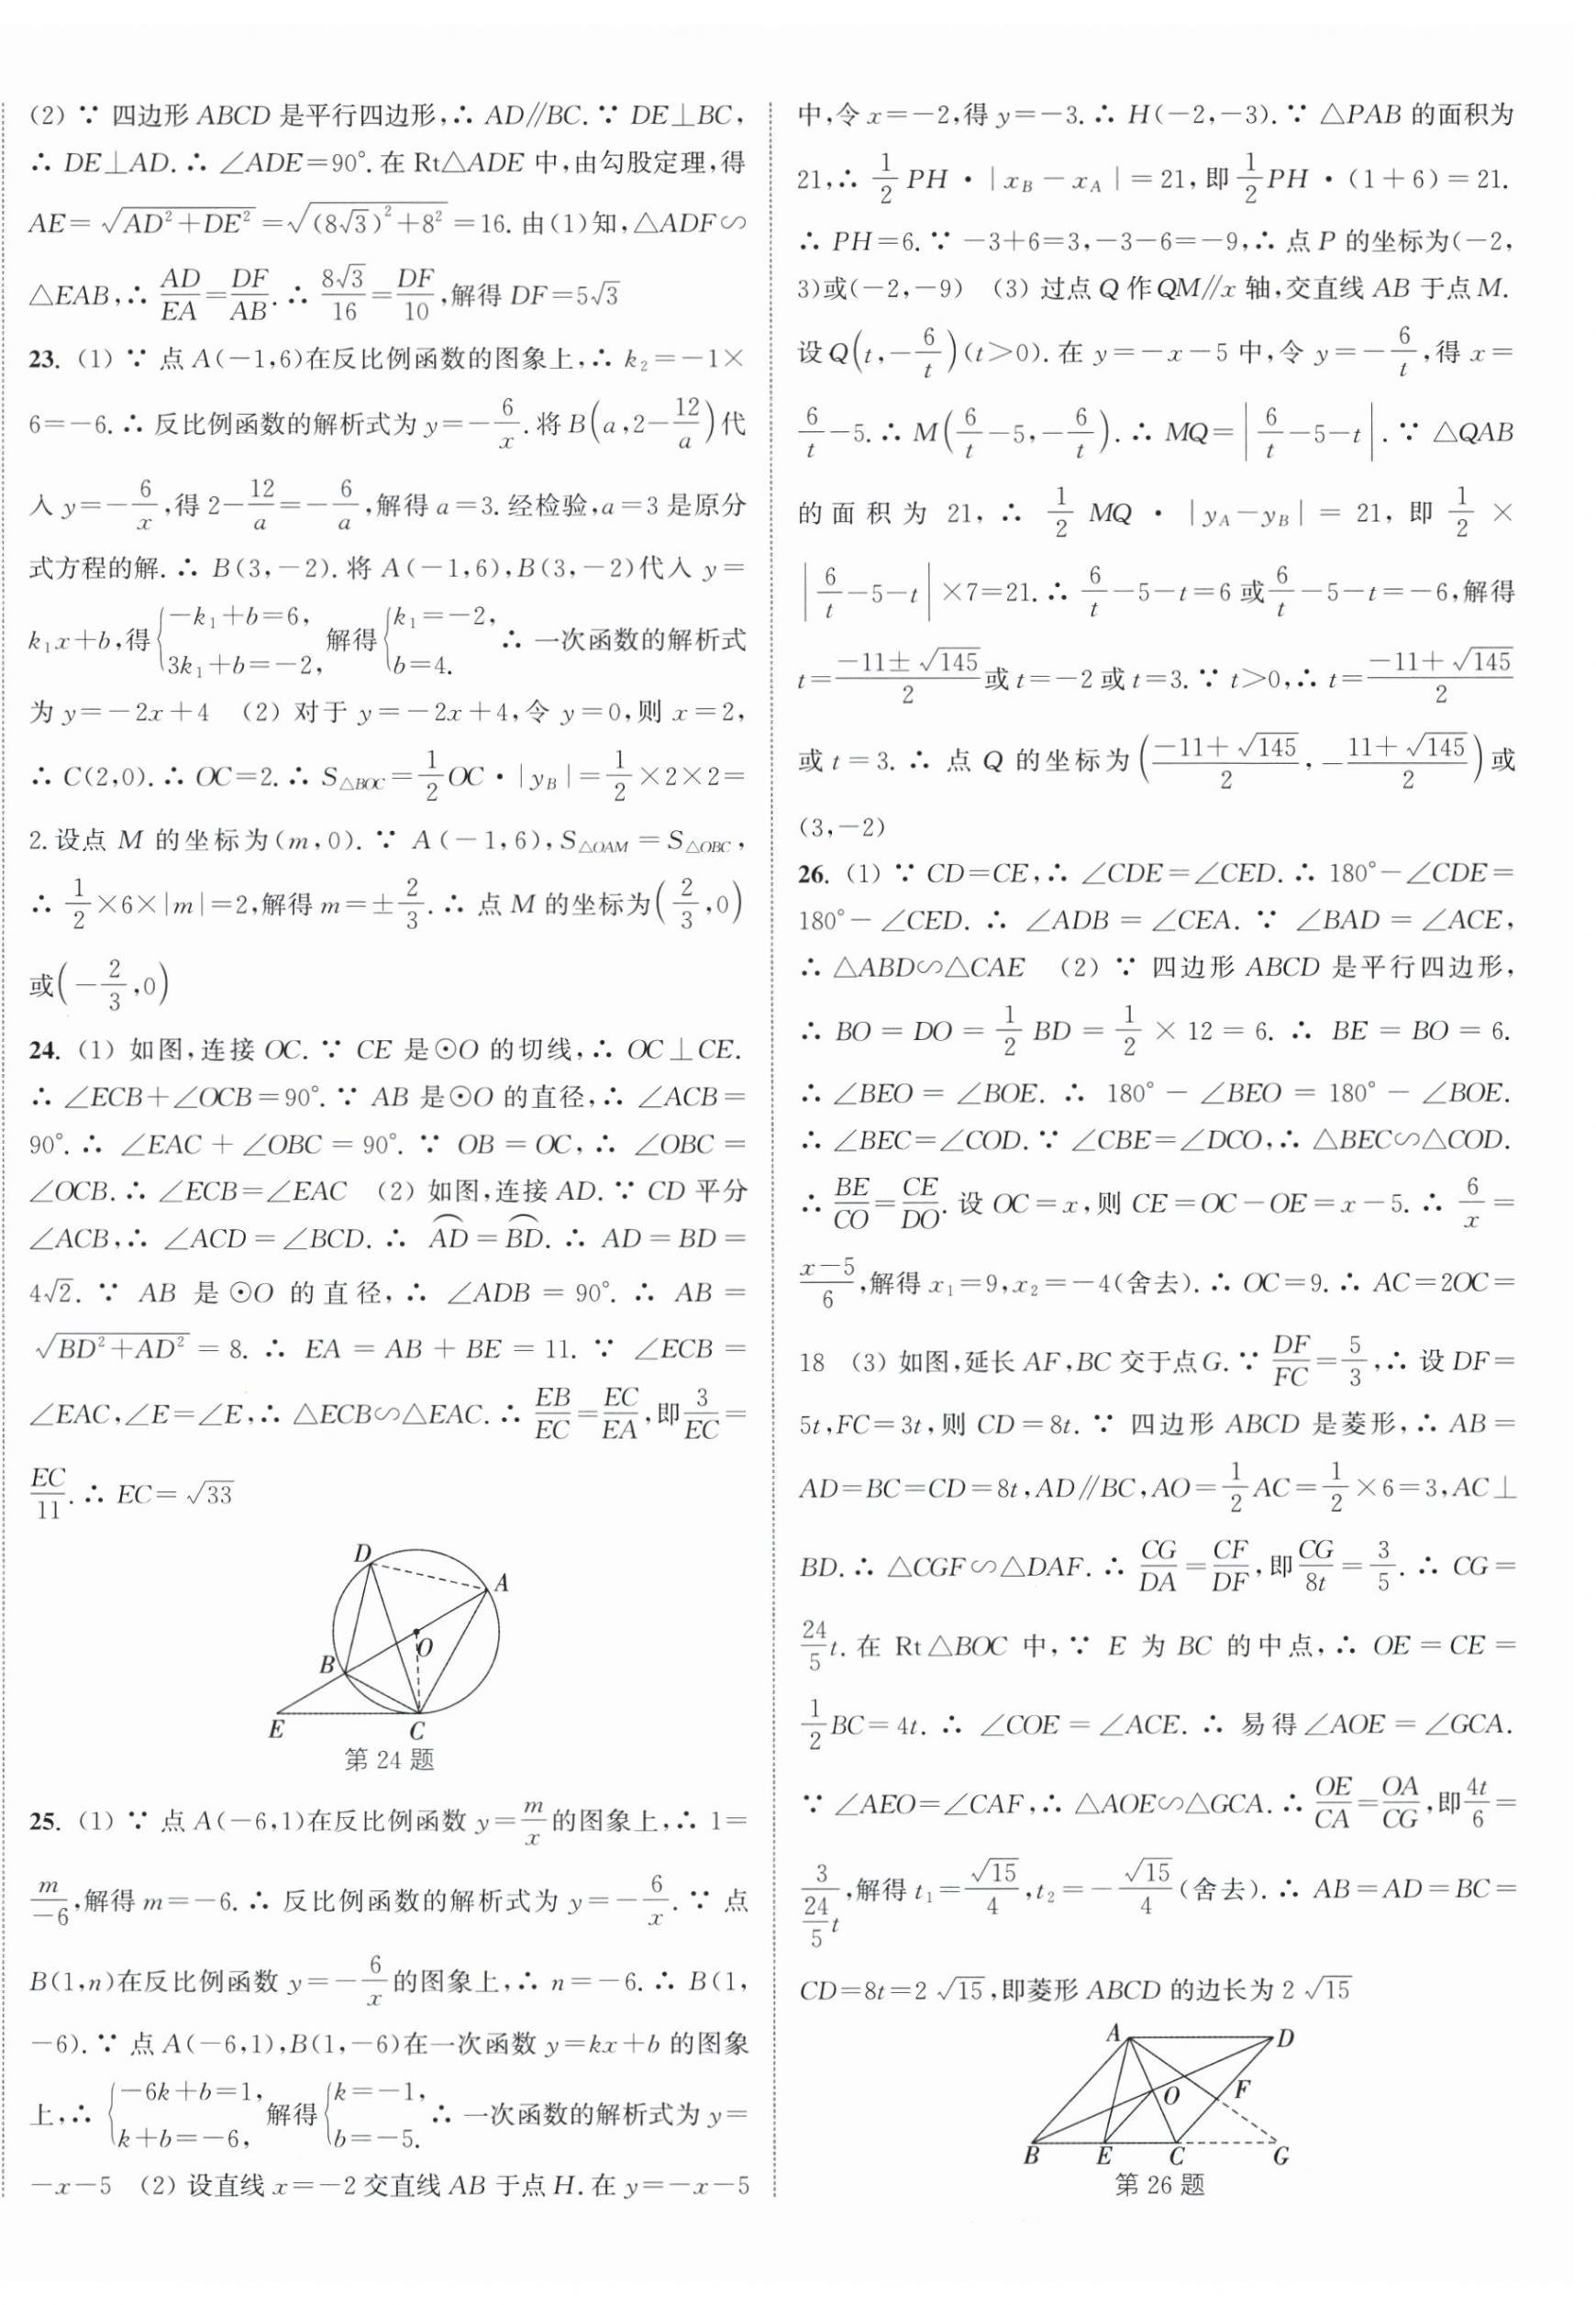 (2) ∵ 四边形 ABCD 是平行四边形,∴ AD∥BC. ∵ DE⊥BC,
∴ DE⊥AD. ∴ ∠ADE=90°. 在 Rt△ADE 中,由勾股定理,得
AE=√(AD²+DE²)=√((8√3)²+8²)=16. 由(1)知,△ADF∽
△EAB,∴ AD/EA=DF/AB. ∴ 8√3/16=DF/10,解得 DF=5√3
23. (1) ∵ 点 A(-1,6)在反比例函数的图象上,∴ k₂=-1×
6=-6. ∴ 反比例函数的解析式为 y=-6/x. 将 B(a,2-12/a)代
入 y=-6/x,得 2-12/a=-6/a,解得 a=3. 经检验,a=3 是原分
式方程的解. ∴ B(3,-2). 将 A(-1,6),B(3,-2)代入 y=
k₁x+b,得{-k₁+b=6, 3k₁+b=-2, 解得{k₁=-2, b=4. ∴ 一次函数的解析式
为 y=-2x+4 (2) 对于 y=-2x+4,令 y=0,则 x=2,
∴ C(2,0). ∴ OC=2. ∴ S△BOC=1/2 OC·|y_B|=1/2×2×2=
2. 设点 M 的坐标为(m,0). ∵ A(-1,6),S△OAM=S△OBC,
∴ 1/2×6×|m|=2,解得 m=±2/3. ∴ 点 M 的坐标为(2/3,0)
或(-2/3,0)
24. (1) 如图,连接 OC. ∵ CE 是⊙O 的切线,∴ OC⊥CE.
∴ ∠ECB+∠OCB=90°. ∵ AB 是⊙O 的直径,∴ ∠ACB=
90°. ∴ ∠EAC+∠OBC=90°. ∵ OB=OC,∴ ∠OBC=
∠OCB. ∴ ∠ECB=∠EAC (2) 如图,连接 AD. ∵ CD 平分
∠ACB,∴ ∠ACD=∠BCD. ∴ ⌒AD=⌒BD. ∴ AD=BD=
4√2. ∵ AB 是⊙O 的直径,∴ ∠ADB=90°. ∴ AB=
√(BD²+AD²)=8. ∴ EA=AB+BE=11. ∵ ∠ECB=
∠EAC,∠E=∠E,∴ △ECB∽△EAC. ∴ EB/EC=EC/EA,即3/EC=
EC/11. ∴ EC=√33
D
A
O
B
E
C
第 24 题
25. (1) ∵ 点 A(-6,1)在反比例函数 y=m/x的图象上,∴ 1=
m/-6,解得 m=-6. ∴ 反比例函数的解析式为 y=-6/x. ∵ 点
B(1,n)在反比例函数 y=-6/x的图象上,∴ n=-6. ∴ B(1,
-6). ∵ 点 A(-6,1),B(1,-6)在一次函数 y=kx+b 的图象
上,∴ {-6k+b=1, k+b=-6, 解得{k=-1, b=-5. ∴ 一次函数的解析式为 y=
-x-5 (2) 设直线 x=-2 交直线 AB 于点 H. 在 y=-x-5
中,令 x=-2,得 y=-3. ∴ H(-2,-3). ∵ △PAB 的面积为
21,∴ 1/2 PH·|x_B-x_A|=21,即1/2 PH·(1+6)=21.
∴ PH=6. ∵ -3+6=3,-3-6=-9,∴ 点 P 的坐标为(-2,
3)或(-2,-9) (3) 过点 Q 作 QM∥x 轴,交直线 AB 于点 M.
设 Q(t,-6/t)(t>0). 在 y=-x-5 中,令 y=-6/t,得 x=
6/t-5. ∴ M(6/t-5,-6/t). ∴ MQ=|6/t-5-t|. ∵ △QAB
的面积为 21,∴ 1/2 MQ·|y_A-y_B|=21,即1/2×
|6/t-5-t|×7=21. ∴ 6/t-5-t=6 或6/t-5-t=-6,解得
t=(-11±√145)/2或 t=-2 或 t=3. ∵ t>0,∴ t=(-11+√145)/2
或 t=3. ∴ 点 Q 的坐标为((-11+√145)/2,-(11+√145)/2)或
(3,-2)
26. (1) ∵ CD=CE,∴ ∠CDE=∠CED. ∴ 180°-∠CDE=
180°-∠CED. ∴ ∠ADB=∠CEA. ∵ ∠BAD=∠ACE,
∴ △ABD∽△CAE (2) ∵ 四边形 ABCD 是平行四边形,
∴ BO=DO=1/2 BD=1/2×12=6. ∴ BE=BO=6.
∴ ∠BEO=∠BOE. ∴ 180°-∠BEO=180°-∠BOE.
∴ ∠BEC=∠COD. ∵ ∠CBE=∠DCO,∴ △BEC∽△COD.
∴ BE/CO=CE/DO. 设 OC=x,则 CE=OC-OE=x-5. ∴ 6/x=
(x-5)/6,解得 x₁=9,x₂=-4(舍去). ∴ OC=9. ∴ AC=2OC=
18 (3) 如图,延长 AF,BC 交于点 G. ∵ DF/FC=5/3,∴ 设 DF=
5t,FC=3t,则 CD=8t. ∵ 四边形 ABCD 是菱形,∴ AB=
AD=BC=CD=8t,AD∥BC,AO=1/2 AC=1/2×6=3,AC⊥
BD. ∴ △CGF∽△DAF. ∴ CG/DA=CF/DF,即CG/8t=3/5. ∴ CG=
24/5 t. 在 Rt△BOC 中,∵ E 为 BC 的中点,∴ OE=CE=
1/2 BC=4t. ∴ ∠COE=∠ACE. ∴ 易得∠AOE=∠GCA.
∵ ∠AEO=∠CAF,∴ △AOE∽△GCA. ∴ OE/CA=OA/CG,即4t/6=
3/(24/5 t),解得 t₁=√15/4,t₂=-√15/4(舍去). ∴ AB=AD=BC=
CD=8t=2√15,即菱形 ABCD 的边长为 2√15
A
D
O
F
B
E
C
G
第 26 题